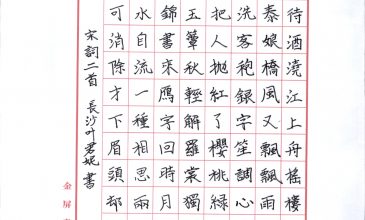 待酒澆江上舟搖樓
泰娘橋風又飄飄雨
洗客袍銀字笙調心
把人拋紅了櫻桃綠
玉簟秋輕解羅裳獨
錦書來鴈字回時
水自流一種相思兩
可消除才下眉頭却
宋詞二首 長沙叶君妮書
金屏